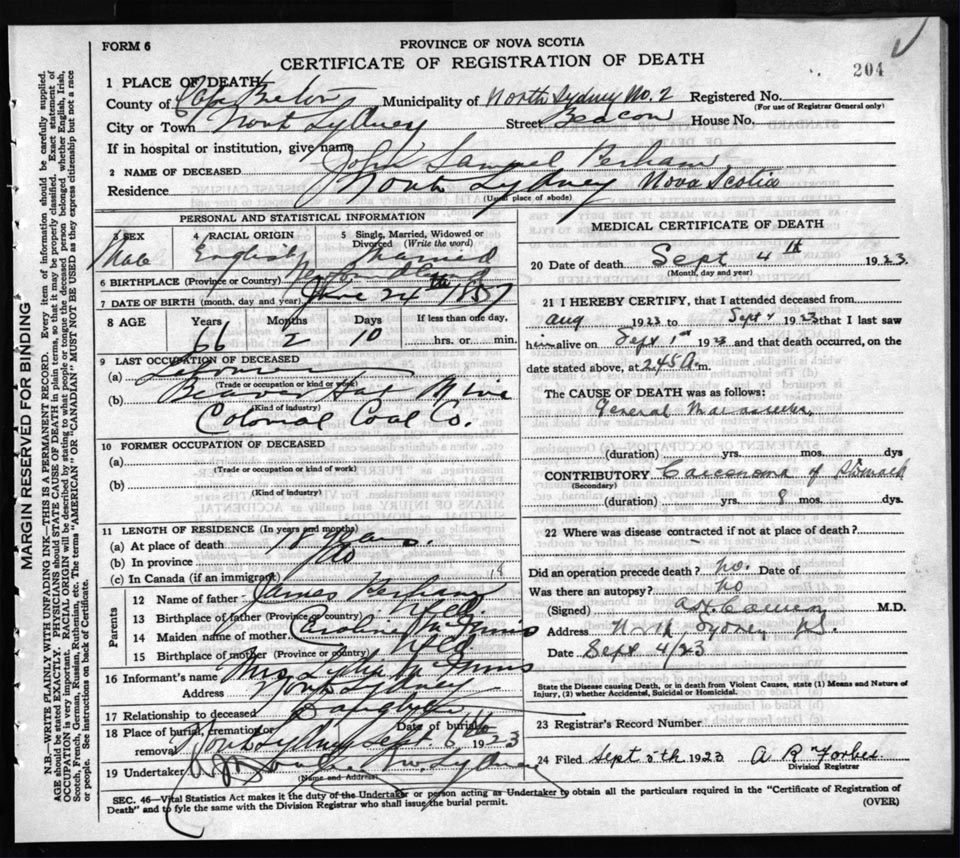 FORM 6
PROVINCE OF NOVA SCOTIA
CERTIFICATE OF REGISTRATION OF DEATH
204
1 PLACE OF DEATH
County of Cape Breton Municipality of North Sydney No. 2 Registered No.
(For use of Registrar General only)
City or Town North Sydney Street Beacon House No.
If in hospital or institution, give name
2 NAME OF DECEASED John Samuel Perham
Residence North Sydney Nova Scotia
(Usual place of abode)
PERSONAL AND STATISTICAL INFORMATION
3 SEX 4 RACIAL ORIGIN 5 Single, Married, Widowed or Divorced (Write the word)
Male English Married
6 BIRTHPLACE (Province or Country) Newfoundland
7 DATE OF BIRTH (month, day and year) June 24th 1857
8 AGE Years Months Days If less than one day,
66 2 10 hrs. or min.
9 LAST OCCUPATION OF DECEASED
(a)
(Trade or occupation or kind of work)
(b) Mine
(Kind of industry)
Colonial Coal Co.
10 FORMER OCCUPATION OF DECEASED
(a)
(Trade or occupation or kind of work)
(b)
(Kind of industry)
11 LENGTH OF RESIDENCE (In years and months)
(a) At place of death 18 years.
(b) In province do
(c) In Canada (if an immigrant) 18
Parents
12 Name of father James Perham
13 Birthplace of father (Province or country) Nfld.
14 Maiden name of mother Caroline McInnis
15 Birthplace of mother (Province or country) Nfld
16 Informant's name Mrs McInnis
Address North Sydney
17 Relationship to deceased Daughter
18 Place of burial, cremation or removal Date of burial
North Sydney Sept. 6, 1923
19 Undertaker No. Sydney
(Name and Address)
MEDICAL CERTIFICATE OF DEATH
20 Date of death Sept 4th 1923.
(Month, day and year)
21 I HEREBY CERTIFY, that I attended deceased from
Aug 1923 to Sept 4 1923 that I last saw
him alive on Sept 1st 1923 and that death occurred, on the
date stated above, at 2.45 A. m.
The CAUSE OF DEATH was as follows:
General
(duration) yrs. mos. dys
CONTRIBUTORY Carcinoma of Stomach
(Secondary)
(duration) yrs. 8 mos. dys.
22 Where was disease contracted if not at place of death?
Did an operation precede death? no. Date of
Was there an autopsy? no
(Signed) M.D.
Address North Sydney NS.
Date Sept 4/23
State the Disease causing Death, or in death from Violent Causes, state (1) Means and Nature of
Injury, (2) whether Accidental, Suicidal or Homicidal.
23 Registrar's Record Number
24 Filed Sept 5th 1923 A R Forbes
Division Registrar
SEC. 46—Vital Statistics Act makes it the duty of the Undertaker or person acting as Undertaker to obtain all the particulars required in the "Certificate of Registration of
Death" and to fyle the same with the Division Registrar who shall issue the burial permit.
(OVER)
MARGIN RESERVED FOR BINDING
N.B.—WRITE PLAINLY WITH UNFADING INK—THIS IS A PERMANENT RECORD. Every item of information should be carefully supplied.
AGE should be stated EXACTLY. PHYSICIANS should STATE CAUSE OF DEATH in plain terms, so that it may be properly classified. Exact statement of
OCCUPATION is very important. RACIAL ORIGIN will be described by stating to what people or tongue the deceased person belonged whether English, Irish,
Scotch, French, German, Russian, Ruthenian, etc. The terms "AMERICAN" or "CANADIAN" MUST NOT BE USED as they express citizenship but not a race
or people. See instructions on back of Certificate.